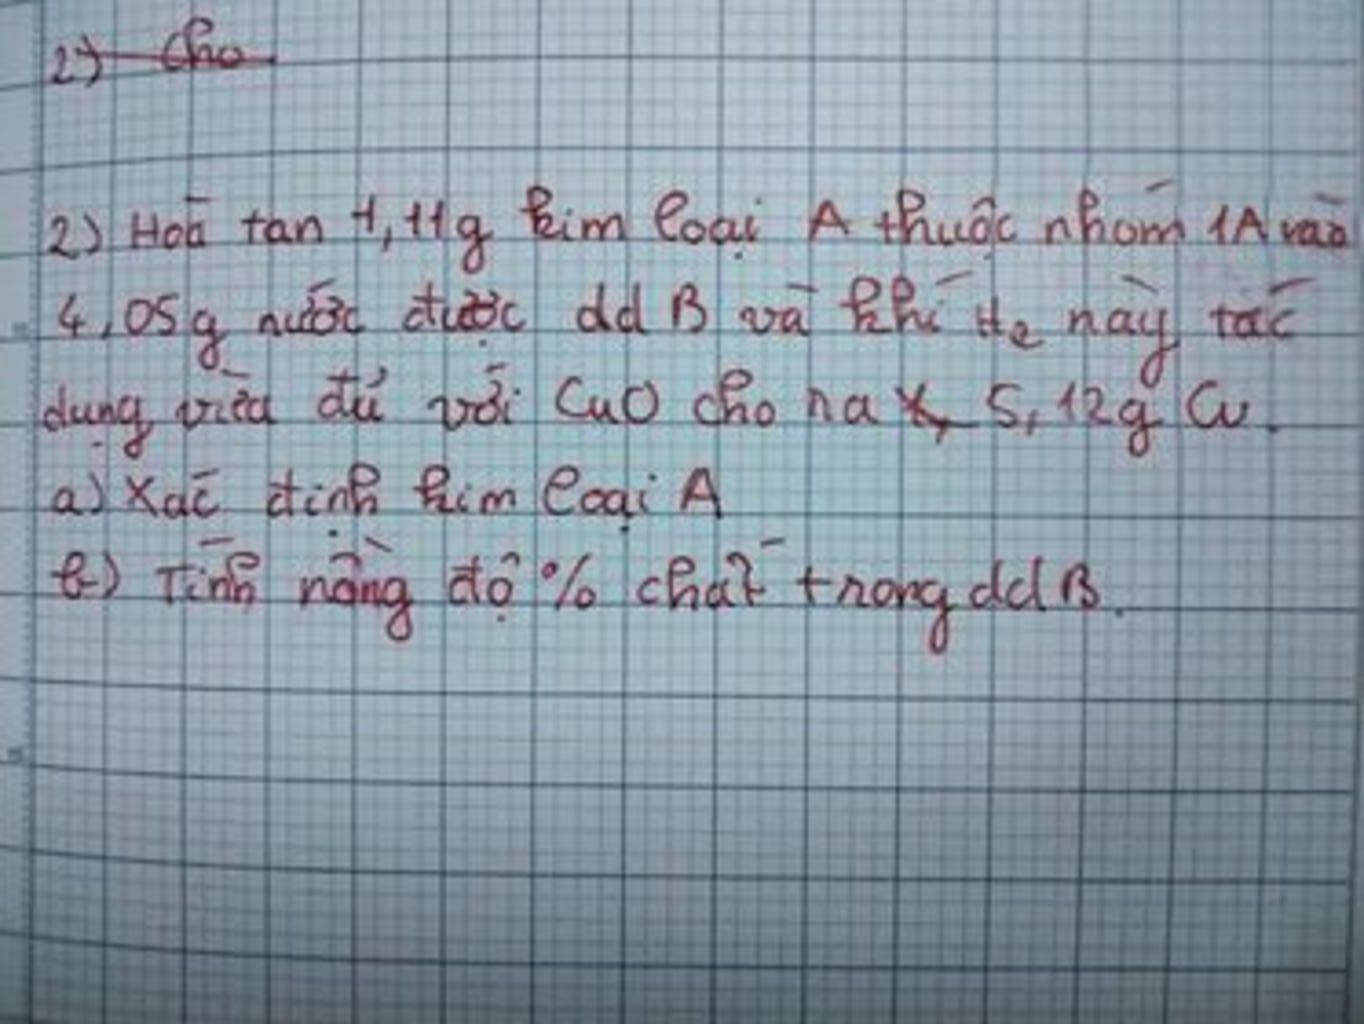 2) Cho
2) Hoà tan 1,11g kim loại A thuộc nhóm 1A vào
4,05g nước được dd B và khí H2 này tác
dụng vừa đủ với CuO cho ra 5,12g Cu.
a) Xác định kim loại A
b) Tính nồng độ % chất trong dd B.